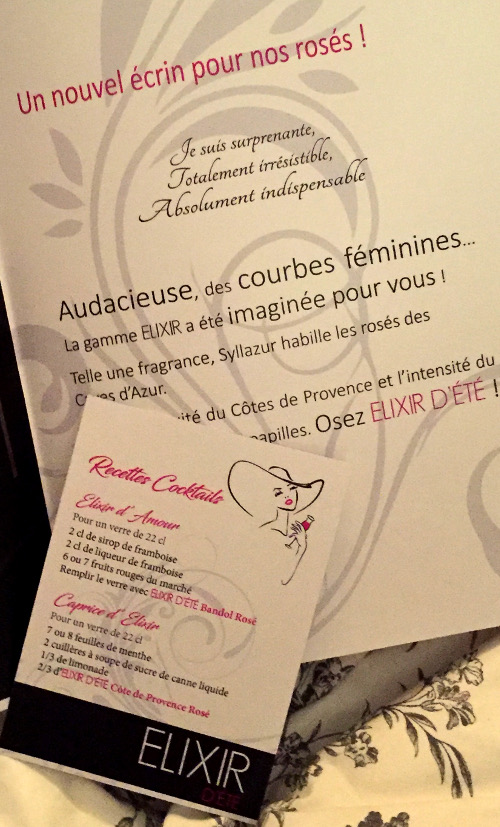 Un nouvel écrin pour nos rosés !
Je suis surprenante,
Totalement irrésistible,
Absolument indispensable
Audacieuse, des courbes féminines...
La gamme ELIXIR a été imaginée pour vous !
Telle une fragrance, Syllazur habille les rosés des
d'Azur.
du Côtes de Provence et l'intensité du
papilles. Osez ELIXIR D'ÉTÉ !
Recettes Cocktails
Elixir d'Amour
Pour un verre de 22 cl
2 cl de sirop de framboise
2 cl de liqueur de framboise
6 ou 7 fruits rouges du marché
Remplir le verre avec ELIXIR D'ÉTÉ Bandol Rosé
Caprice d'Elixir
Pour un verre de 22 cl
7 ou 8 feuilles de menthe
2 cuillères à soupe de sucre de canne liquide
1/3 de limonade
2/3 d'ELIXIR D'ÉTÉ Côte de Provence Rosé
ELIXIR
D'ÉTÉ